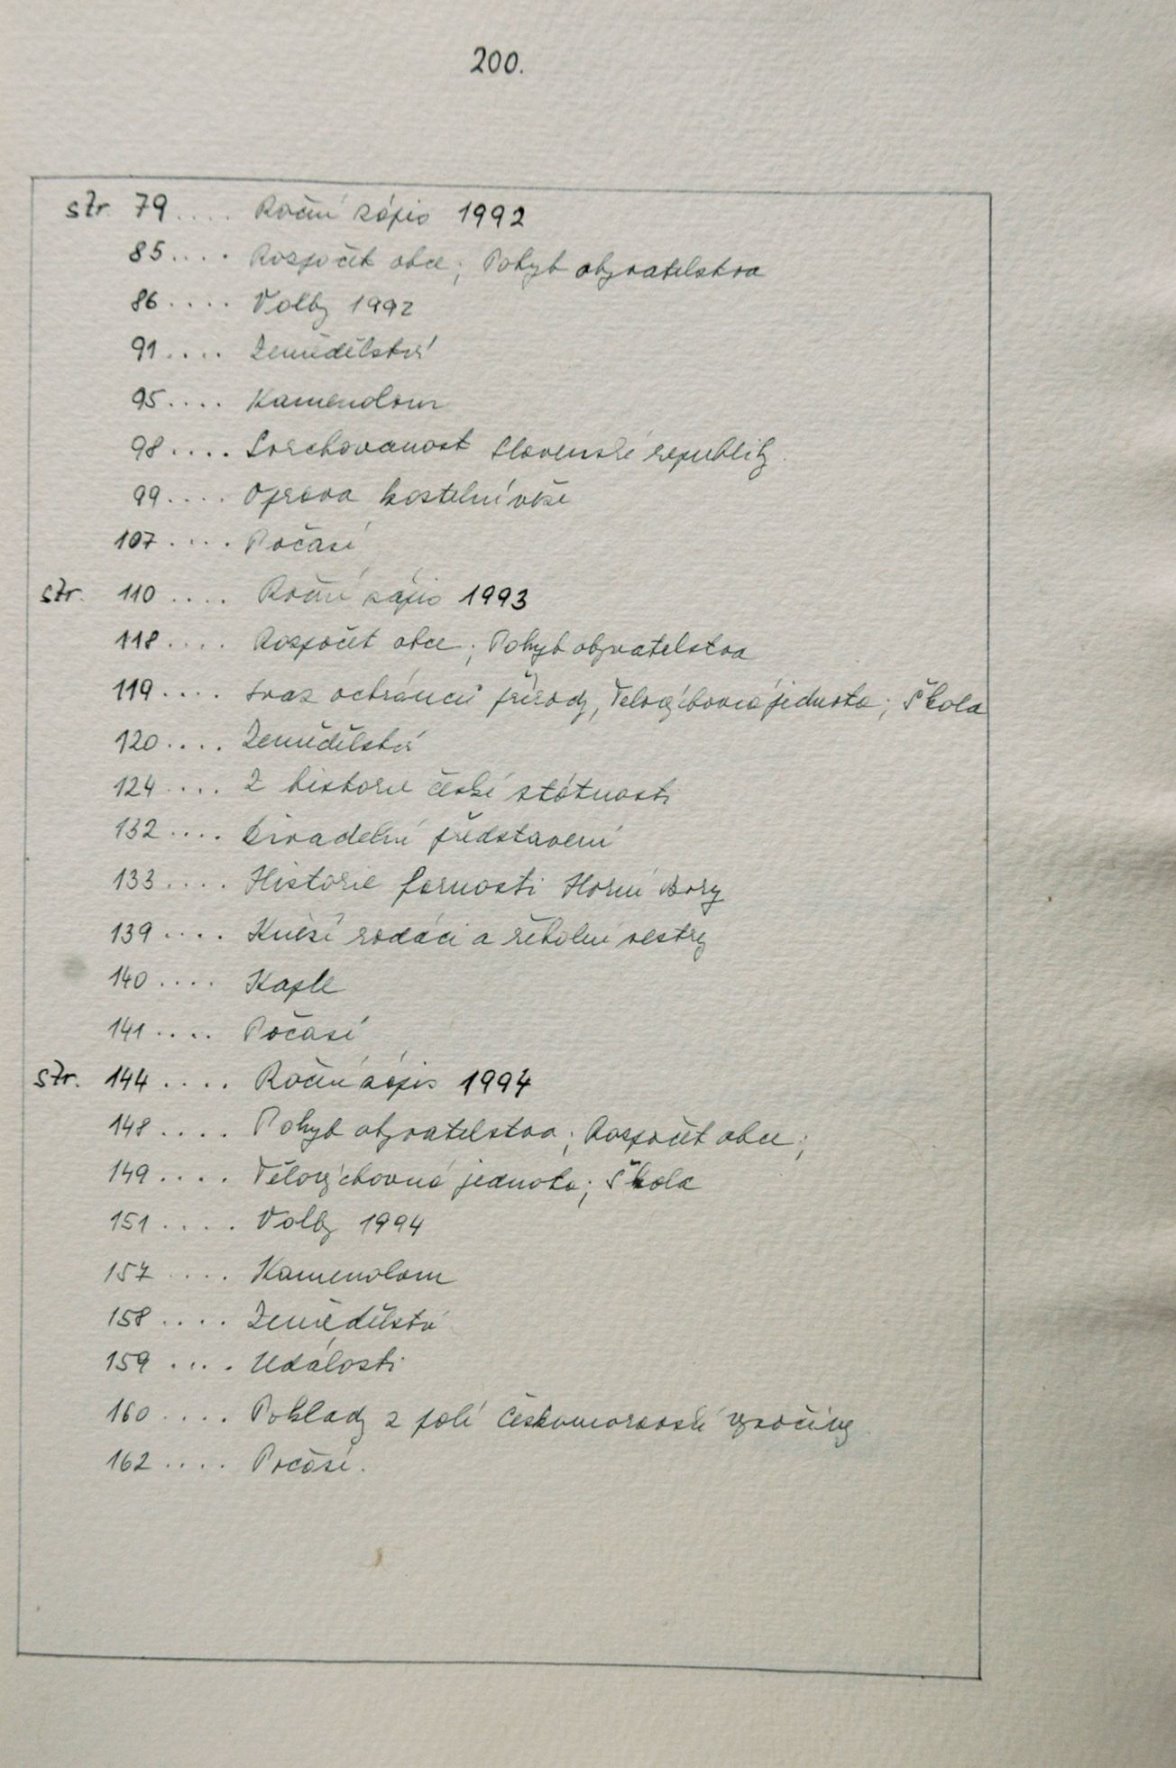 200.
str. 79 .... Roční zápis 1992
85 .... Rozpočet obce; Pohyb obyvatelstva
86 .... Volby 1992
91 .... Zemědělství
95 .... Kamenolom
98 .... Svrchovanost Slovenské republiky.
99 .... Oprava kostelní věže
107 .... Počasí
str. 110 .... Roční zápis 1993
118 .... Rozpočet obce; Pohyb obyvatelstva
119 .... Svaz ochránců přírody, Tělovýchovná jednota; Škola
120 .... Zemědělství
124 .... Z historie české státnosti
132 .... Divadelní představení
133 .... Historie farnosti Horní Bory
139 .... Kněží rodáci a řeholní sestry
140 .... Kaple
141 .... Počasí
str. 144 .... Roční zápis 1994
148 .... Pohyb obyvatelstva; Rozpočet obce;
149 .... Tělovýchovná jednota; Škola
151 .... Volby 1994
157 .... Kamenolom
158 .... Zemědělství
159 .... Události
160 .... Poklady z polí Českomoravské vysočiny
162 .... Počasí.